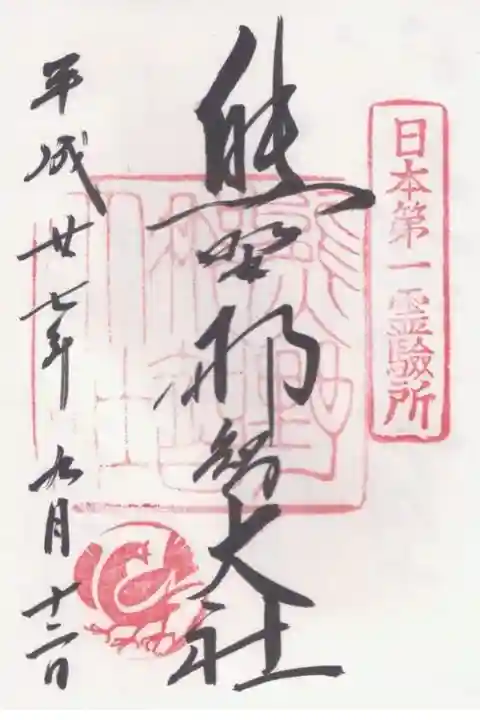 日本第一霊験所
熊野那智大社
平成廿七年 九月十二日